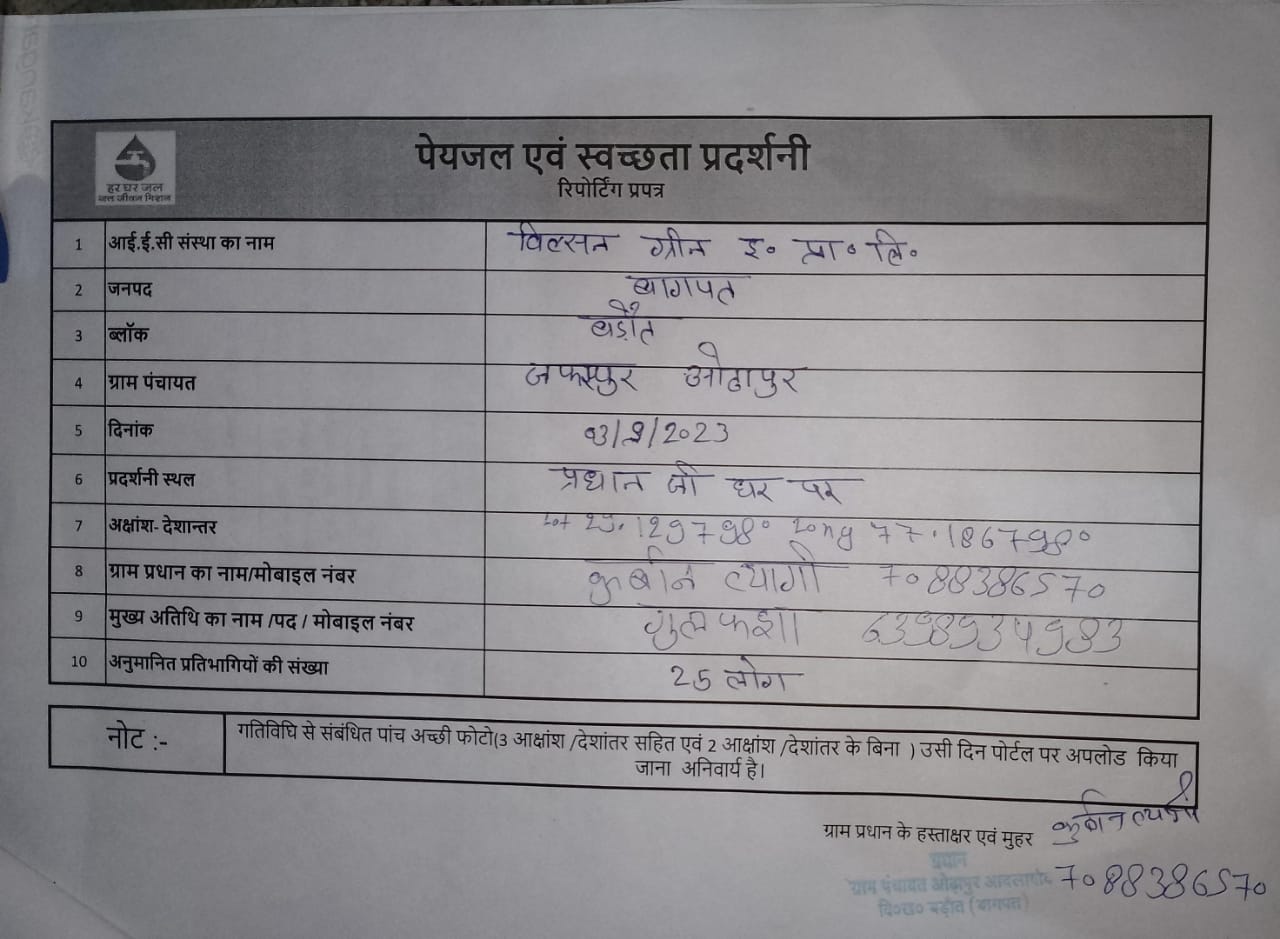 हर घर जल
जल जीवन मिशन
पेयजल एवं स्वच्छता प्रदर्शनी
रिपोर्टिंग प्रपत्र
1 आई.ई.सी संस्था का नाम विल्सन ग्रीन इ० प्रा० लि०
2 जनपद बागपत
3 ब्लॉक बड़ौत
4 ग्राम पंचायत ओढापुर
5 दिनांक 03/9/2023
6 प्रदर्शनी स्थल प्रधान जी घर पर
7 अक्षांश- देशान्तर Lat 29.129798° Long 77.186798°
8 ग्राम प्रधान का नाम/मोबाइल नंबर कुर्बान त्यागी 7088386570
9 मुख्य अतिथि का नाम /पद / मोबाइल नंबर गुलफशा 6398934983
10 अनुमानित प्रतिभागियों की संख्या 25 लोग
नोट :- गतिविधि से संबंधित पांच अच्छी फोटो(3 आक्षांश /देशांतर सहित एवं 2 आक्षांश /देशांतर के बिना ) उसी दिन पोर्टल पर अपलोड किया
जाना अनिवार्य है।
ग्राम प्रधान के हस्ताक्षर एवं मुहर कुर्बान त्यागी
प्रधान
ग्राम पंचायत ओढ़ापुर 7088386570
वि०ख० बड़ौत (बागपत)